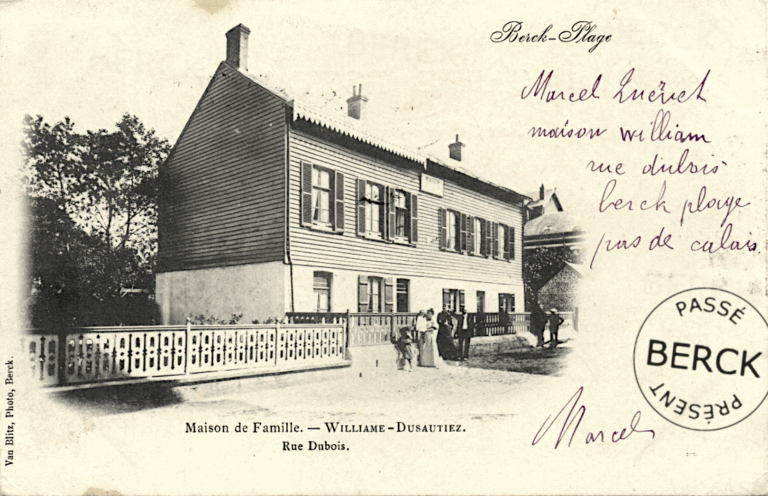 Berck-Plage
Marcel
maison william
rue dubois
berck plage
pas de calais.
PASSÉ
BERCK
PRÉSENT
Marcel
Maison de Famille. — WILLIAME-DUSAUTIEZ.
Rue Dubois.
Van Blitz, Photo, Berck.